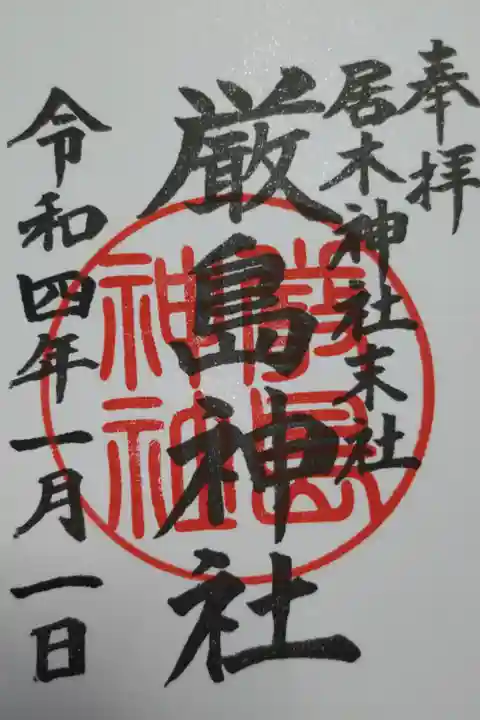 奉拝
居木神社末社
厳島神社
厳島
神社
令和四年一月一日